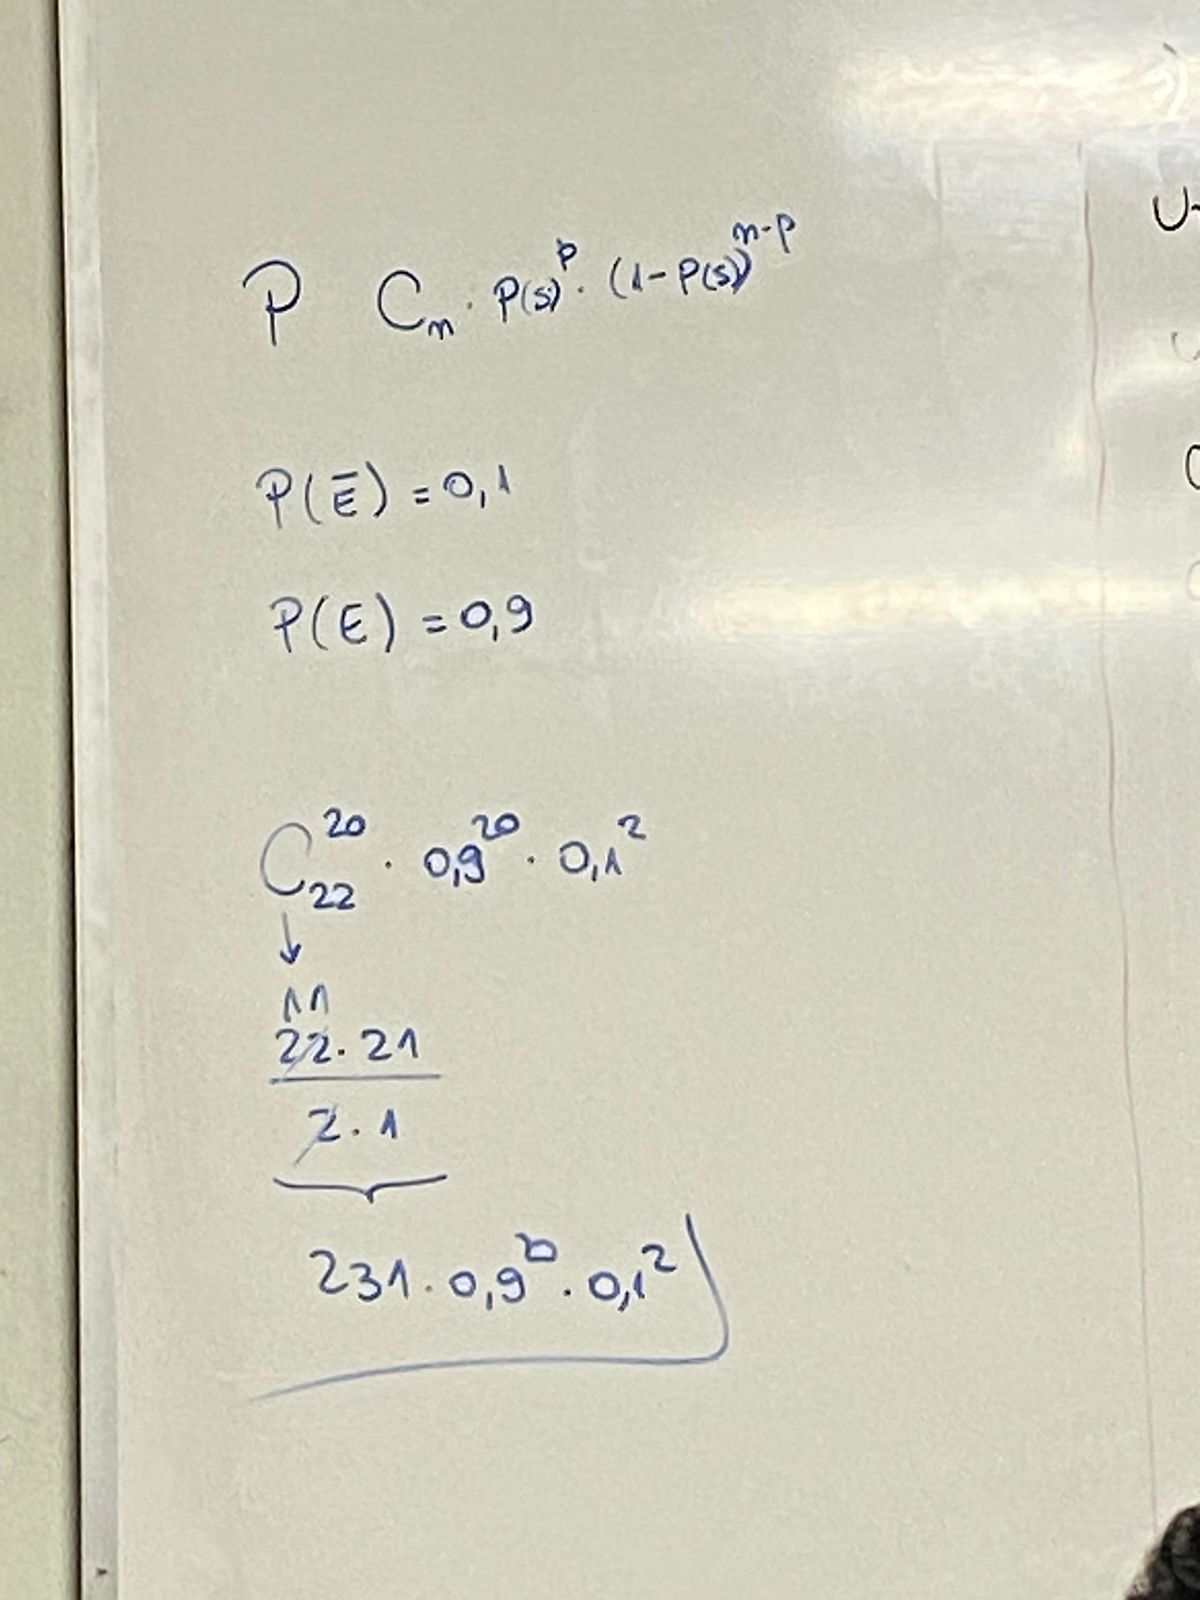 P Cₙ · P(s)ᵖ · (1-P(s))ⁿ⁻ᵖ
P(Ē) = 0,1
P(E) = 0,9
C₂₂²⁰ · 0,9²⁰ · 0,1²
↓
11
22 · 21
2 · 1
231 · 0,9²⁰ · 0,1²